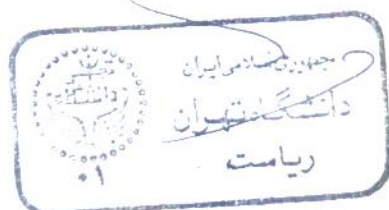 جمهوری اسلامی ایران
دانشگاه تهران
ریاست
دانشگاه
۰۱